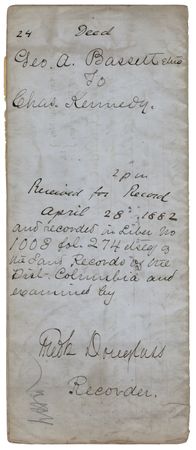 24 Deed
Geo. A. Bassett et ux
To
Chas. Kennedy.
2 p m
Received for Record
April 28th, 1882
and recorded in Liber No
1008 fol. 274 et seq of
the Land Records of the
Dist. Columbia and
examined by
Fredk Douglass
Recorder.